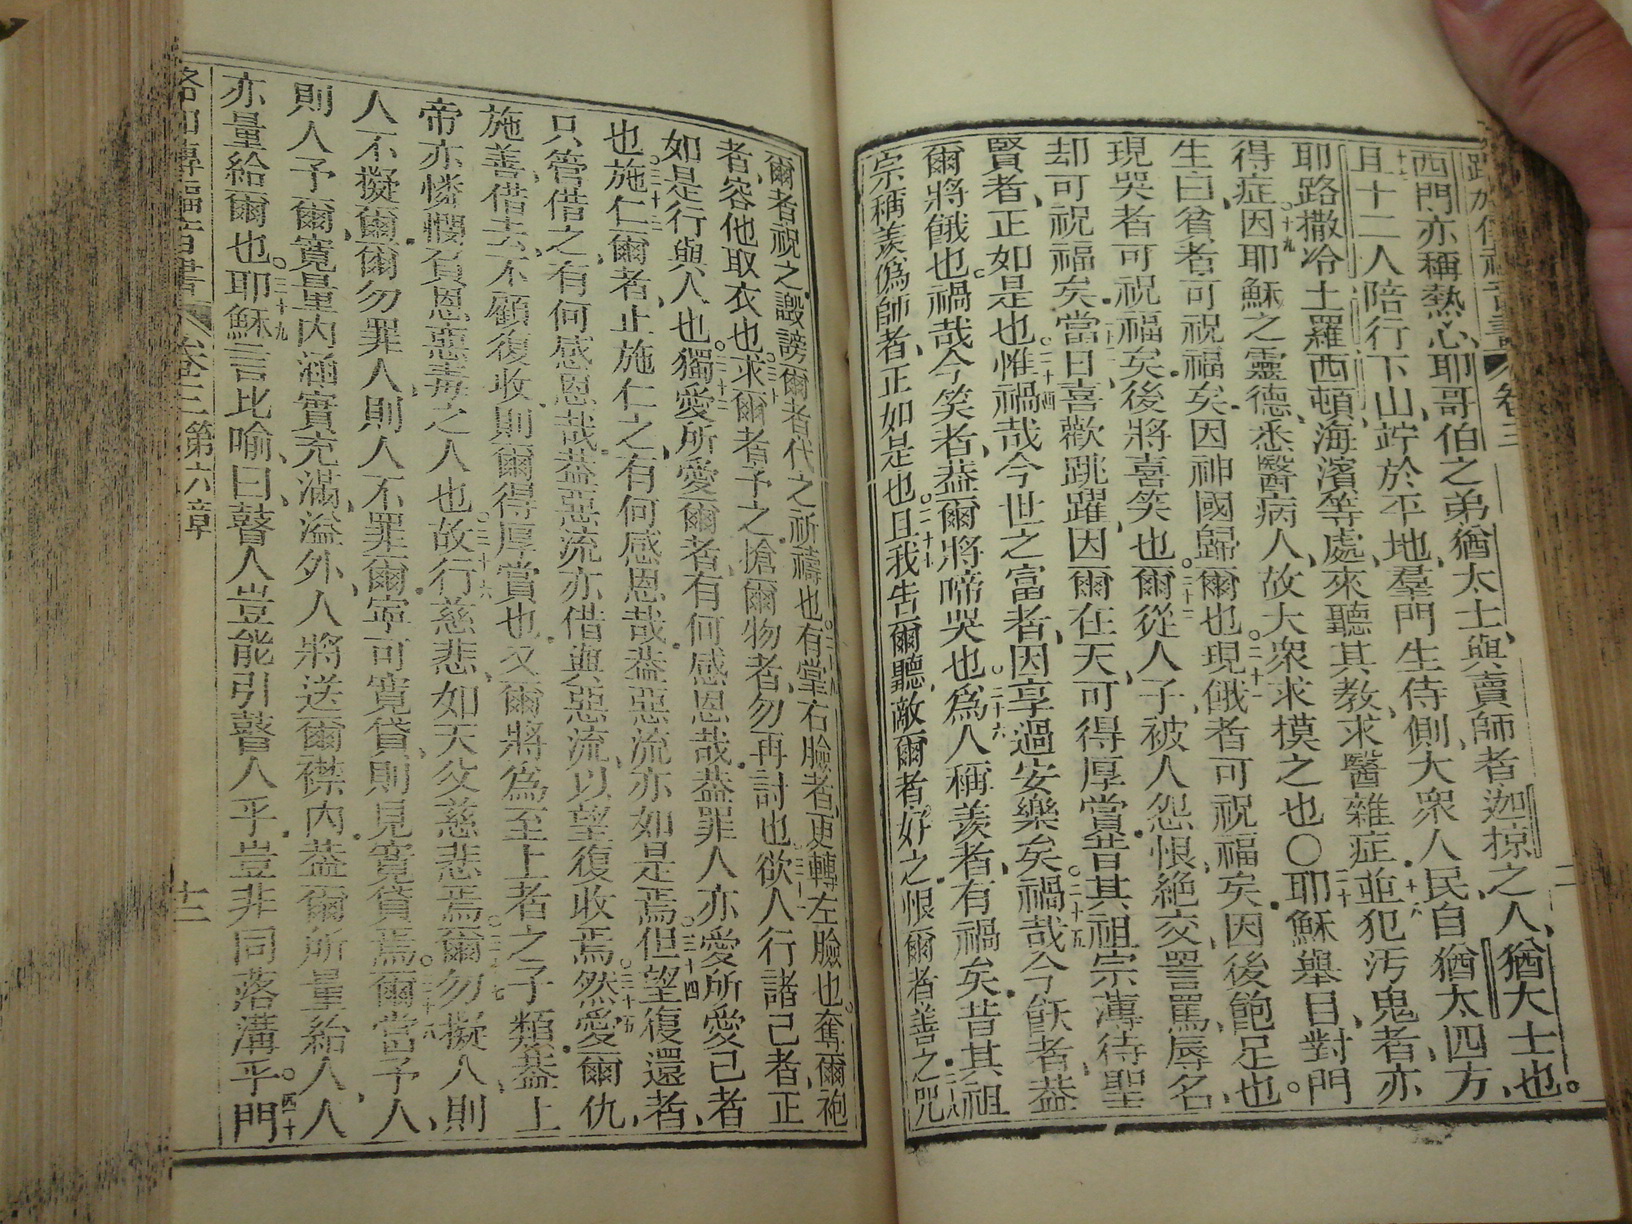 西門亦稱熱心、耶哥伯之弟猶太士、與賣師者迦掠之人、猶大士也。
且十二人陪行下山、竚於平地、羣門生侍側、大衆人民自猶太四方
耶路撒冷土羅西頓、海濱等處、來聽其教、求醫雜症、並犯污鬼者、亦
得症、因耶穌之靈德、悉醫病人、故大衆求摸之也○耶穌舉目對門
生曰、貧者可祝福矣、因神國歸爾也、現餓者可祝福矣、因後飽足也、
現哭者可祝福矣、後將喜笑也。爾從人子、被人怨恨絕交詈罵辱名、
却可祝福矣、當日喜歡跳躍、因爾在天、可得厚賞、昔其祖宗薄待聖
賢者、正如是也。惟禍哉今世之富者、因享過安樂矣。禍哉今飫者、蓋
爾將餓也、禍哉今笑者、蓋爾將啼哭也。爲人稱羨者、有禍矣、昔其祖
宗稱羨僞師者、正如是也。且我告爾聽、敵爾者好之、恨爾者善之、咒
爾者祝之、譭謗爾者代之祈禱也。有掌右臉者、更轉左臉也。奪爾袍
者、容他取衣也。求爾者予之、搶爾物者、勿再討也。欲人行諸己者、正
如是行與人也。獨愛所愛爾者、有何感恩哉、蓋罪人亦愛所愛己者
也。施仁爾者、止施仁之、有何感恩哉、蓋惡流亦如是焉。但望復還者、
只管借之、有何感恩哉、蓋惡流亦借與惡流、以望復收焉。然愛爾仇、
施善、借去、不顧復收、則爾得厚賞也、又爾將爲至上者之子類、蓋上
帝亦憐憫負恩惡毒之人也。故行慈悲、如天父慈悲焉。爾勿擬人、則
人不擬爾、爾勿罪人、則人不罪爾、寧可寬貸、則見寬貸焉。爾當予人、
則人予爾、寬量內涵實充滿、溢外、人將送爾襟內、蓋爾所量給人、人
亦量給爾也。耶穌言比喻曰、瞽人豈能引瞽人乎、豈非同落溝乎。門
路加傳福音書 卷三 第六章 十二